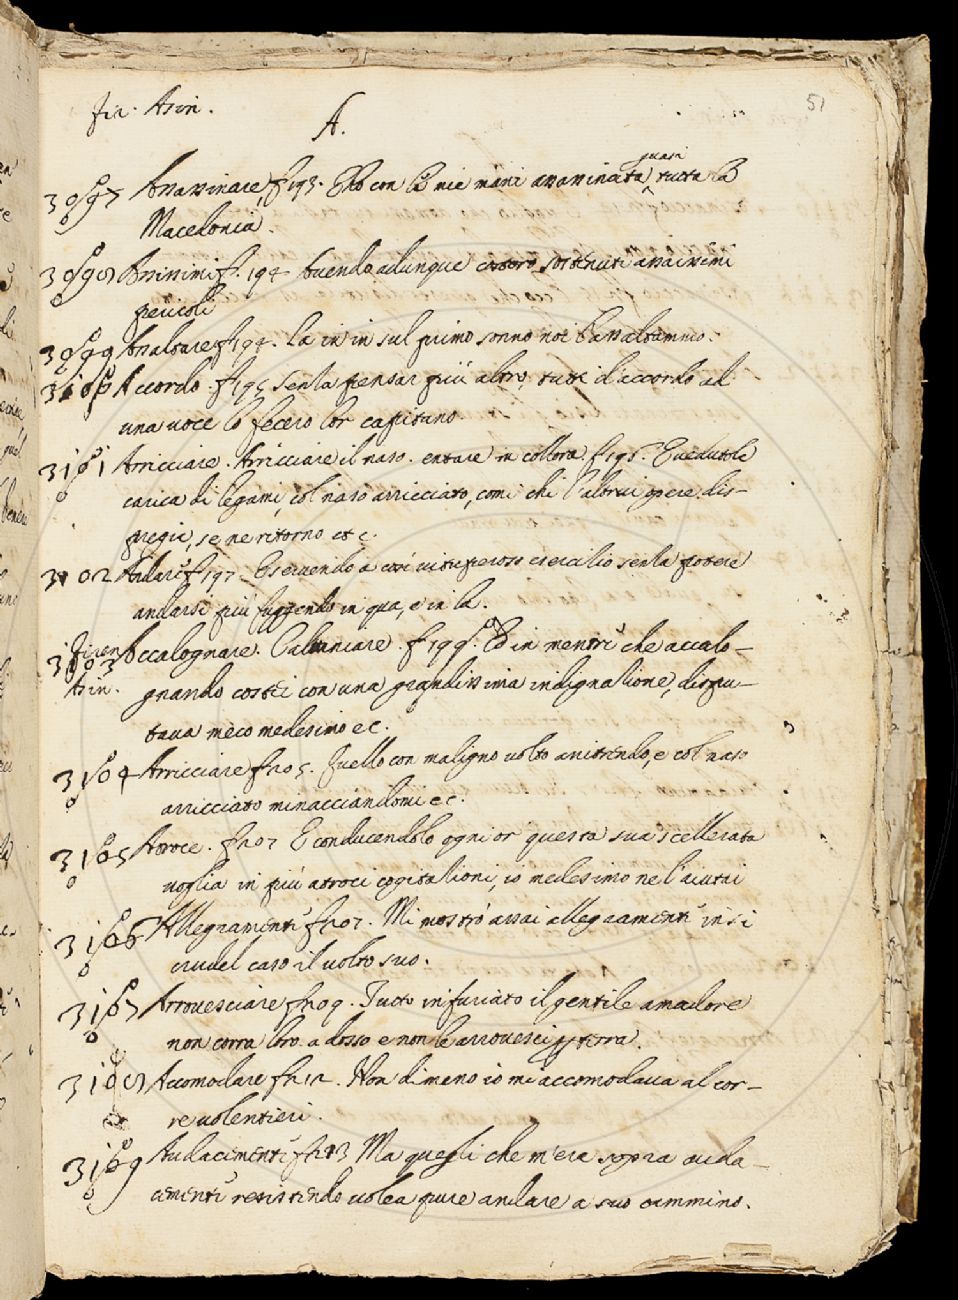 Fir. Asin.
51
A.
3097 Assassinare, f 193. Ed io con le mie mani assassinata quasi tutta la
Macedonia.
3098 Assissimi f. 194 havendo adunque costoro sostenuti assaissimi
pericoli
3099 Assaltare f 194. La in in sul primo sonno noi l'assaltammo.
3100 Accordo. f 195 senza pensar più altro, tutti d'accordo ad
una voce lo fecero lor capitano
3101 Arricciare. Arricciare il naso. entrare in collora f 195. E vedutole
carica di legami, col naso arricciato, come chi l'altrui opere dis-
pregie, se ne ritorno etc.
3102 Andare f 197. Essendo a così vituperoso esercizio senza potere
andarsi più fuggendo in qua, e in la.
3103 Firen. Asin. Accalognare. Calunniare. f 199. Ed in mentre che accalo-
gnando costei con una grandissima indignazione, dispu-
tava meco medesimo ec.
3104 Arricciare f 205. Quello con maligno volto anitrendo, e col naso
arricciato minacciandomi ec.
3105 Atroce. f 207 E conducendolo ogni or questa sua scellerata
voglia in più atroci cogitazioni, io medesimo ne l'aiutai
3106 Allegramente f 207. Mi mostrò assai allegramente in sì
crudel caso il volto suo.
3107 Arrovesciare f 209. Tutto infuriato il gentile amadore
non corra loro adosso e non le arrovesci p terra.
3108 Acomodare f 212. Non di meno io mi accomodava al cor-
re volentieri.
3109 Audacemente f 213 Ma quegli che m'era sopra auda-
cemente resistendo volea pure andare a suo cammino.